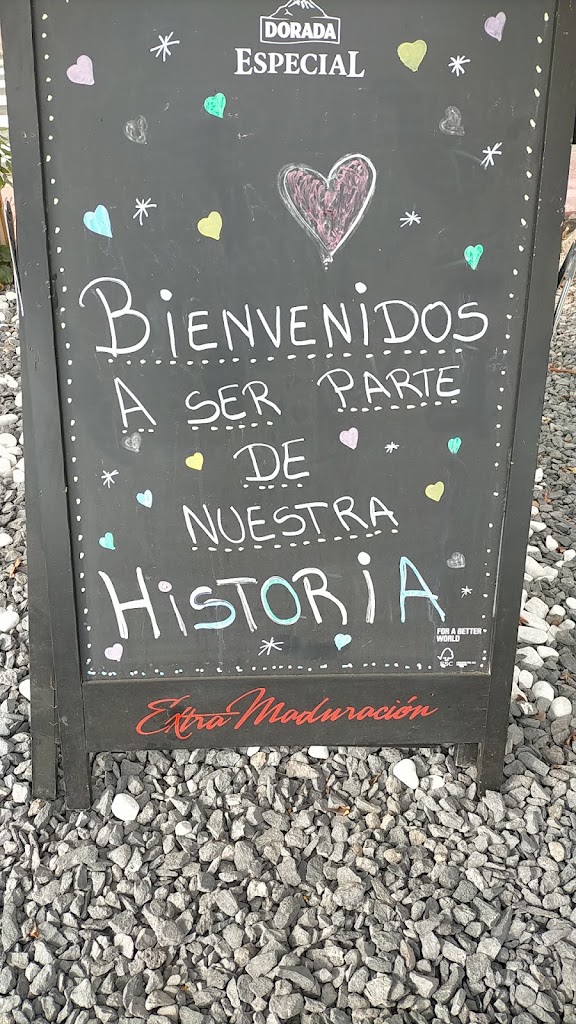 DORADA
ESPECIAL
BIENVENIDOS
A SER PARTE
DE
NUESTRA
HISTORIA
FOR A BETTER
WORLD
FSC
Extra Maduración